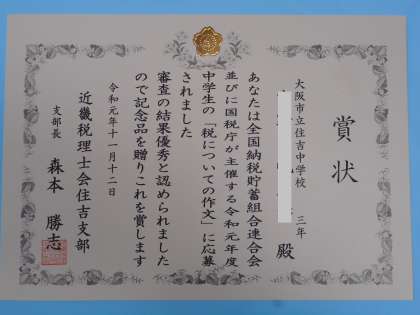 賞状
大阪市立住吉中学校
三年
殿
あなたは全国納税貯蓄組合連合会
並びに国税庁が主催する令和元年度
中学生の「税についての作文」に応募
されました
審査の結果優秀と認められました
ので記念品を贈りこれを賞します
令和元年十一月十二日
近畿税理士会住吉支部
支部長 森本 勝志